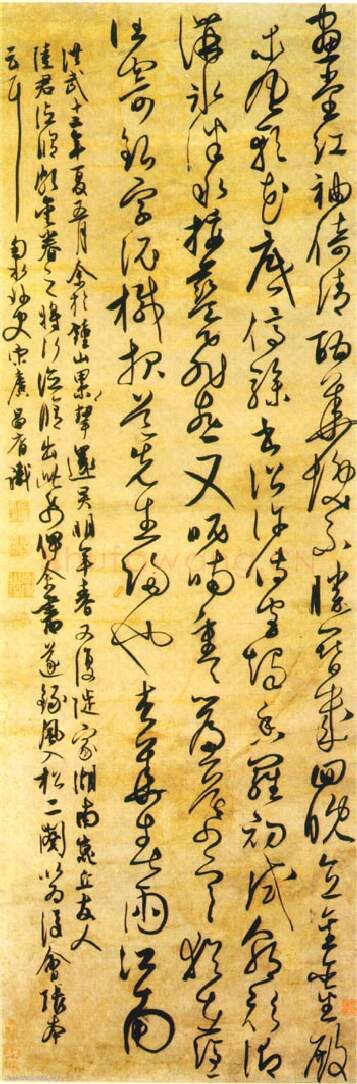 畫堂紅袖倚清酣華髮不勝簪幾回晚直金鑾殿
東風軟花底停驂書詔許傳宮燭香羅初試朝衫御
溝冰泮水挼藍飛燕又呢喃重重簾幕寒猶在憑
誰寄銀字泥緘報道先生歸也杏花春雨江南
洪武十二年夏五月余於鍾山畢還吳明年春又復徙家湖南友人
陸君眷之將行出此命余書遂錄風入松二闋以為後會張本
云耳 宋廣昌裔識